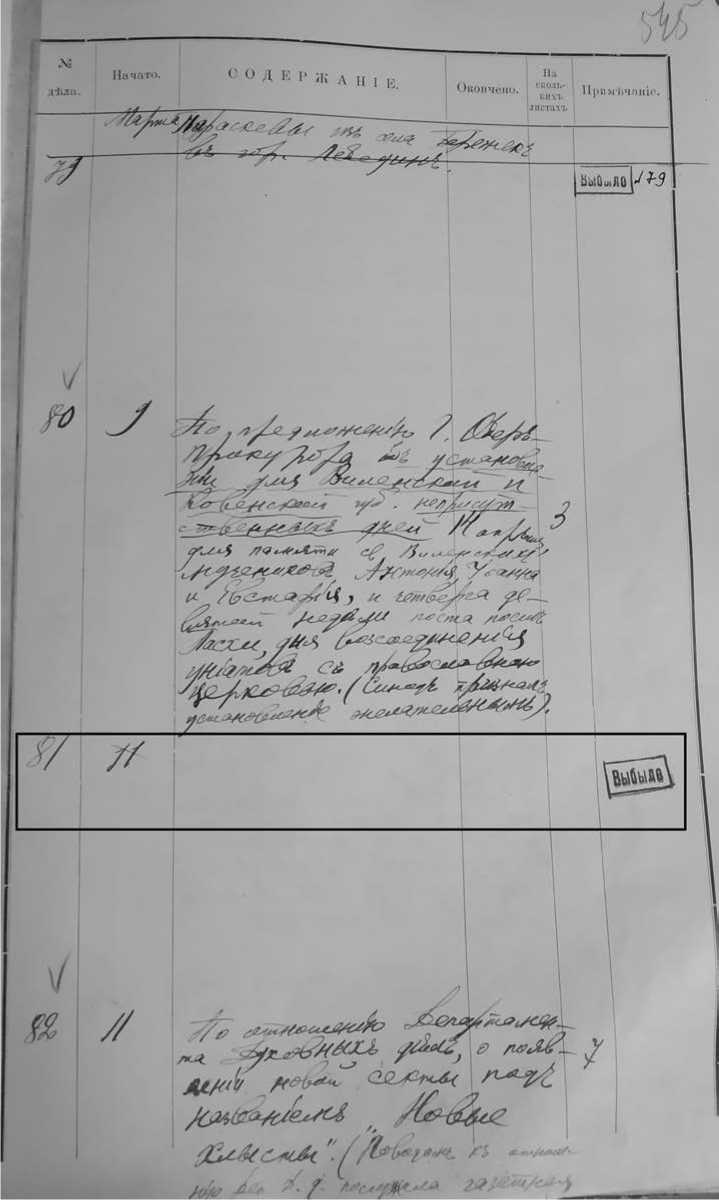 545
№ дѣла.
Начато.
СОДЕРЖАНІЕ.
Окончено.
На сколькихъ листахъ.
Примѣчаніе.
Марта Параскевы изъ села Бережекъ
въ гор. Лебединъ.
79
Выбыло №79
80
9
По предложенію Г. Оберъ-
прокурора объ установле-
ніи для Виленской и
Ковенской губ. неприсут-
ственныхъ дней 14 апрѣля
3
для памяти св. Виленскихъ
мучениковъ, Антонія, Іоанна
и Евстафія, и четверга де-
вятой недѣли поста послѣ
Пасхи, дня возсоединенія
уніатовъ съ православною
церковью. (Синодъ призналъ
установленіе желательнымъ).
81
11
Выбыло
82
11
По отношенію Департамен-
та Духовныхъ дѣлъ, о появ-
7
леніи новой секты подъ
названіемъ „Новые
Хлысты“. (Поводомъ къ отноше-
нію послужила газетная